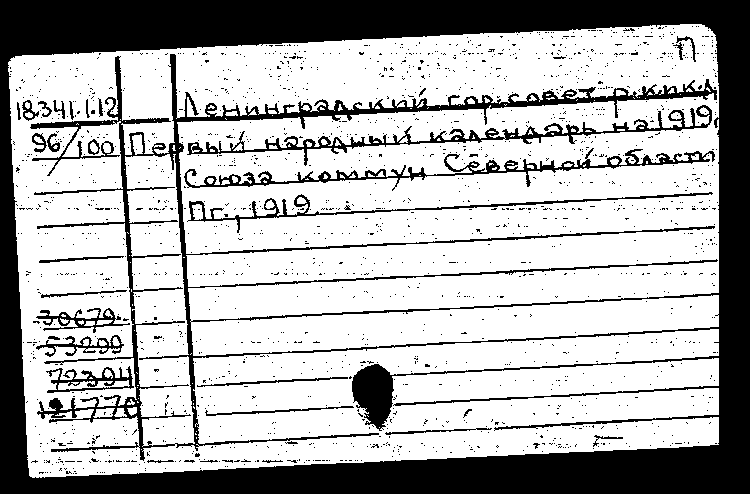 П
18.341.1.12 Ленинградский гор. совет р.к.п.к.д
96/100 Первый народный календарь на 1919
Союза коммун Северной области
Пг., 1919.
30679
53299
72394